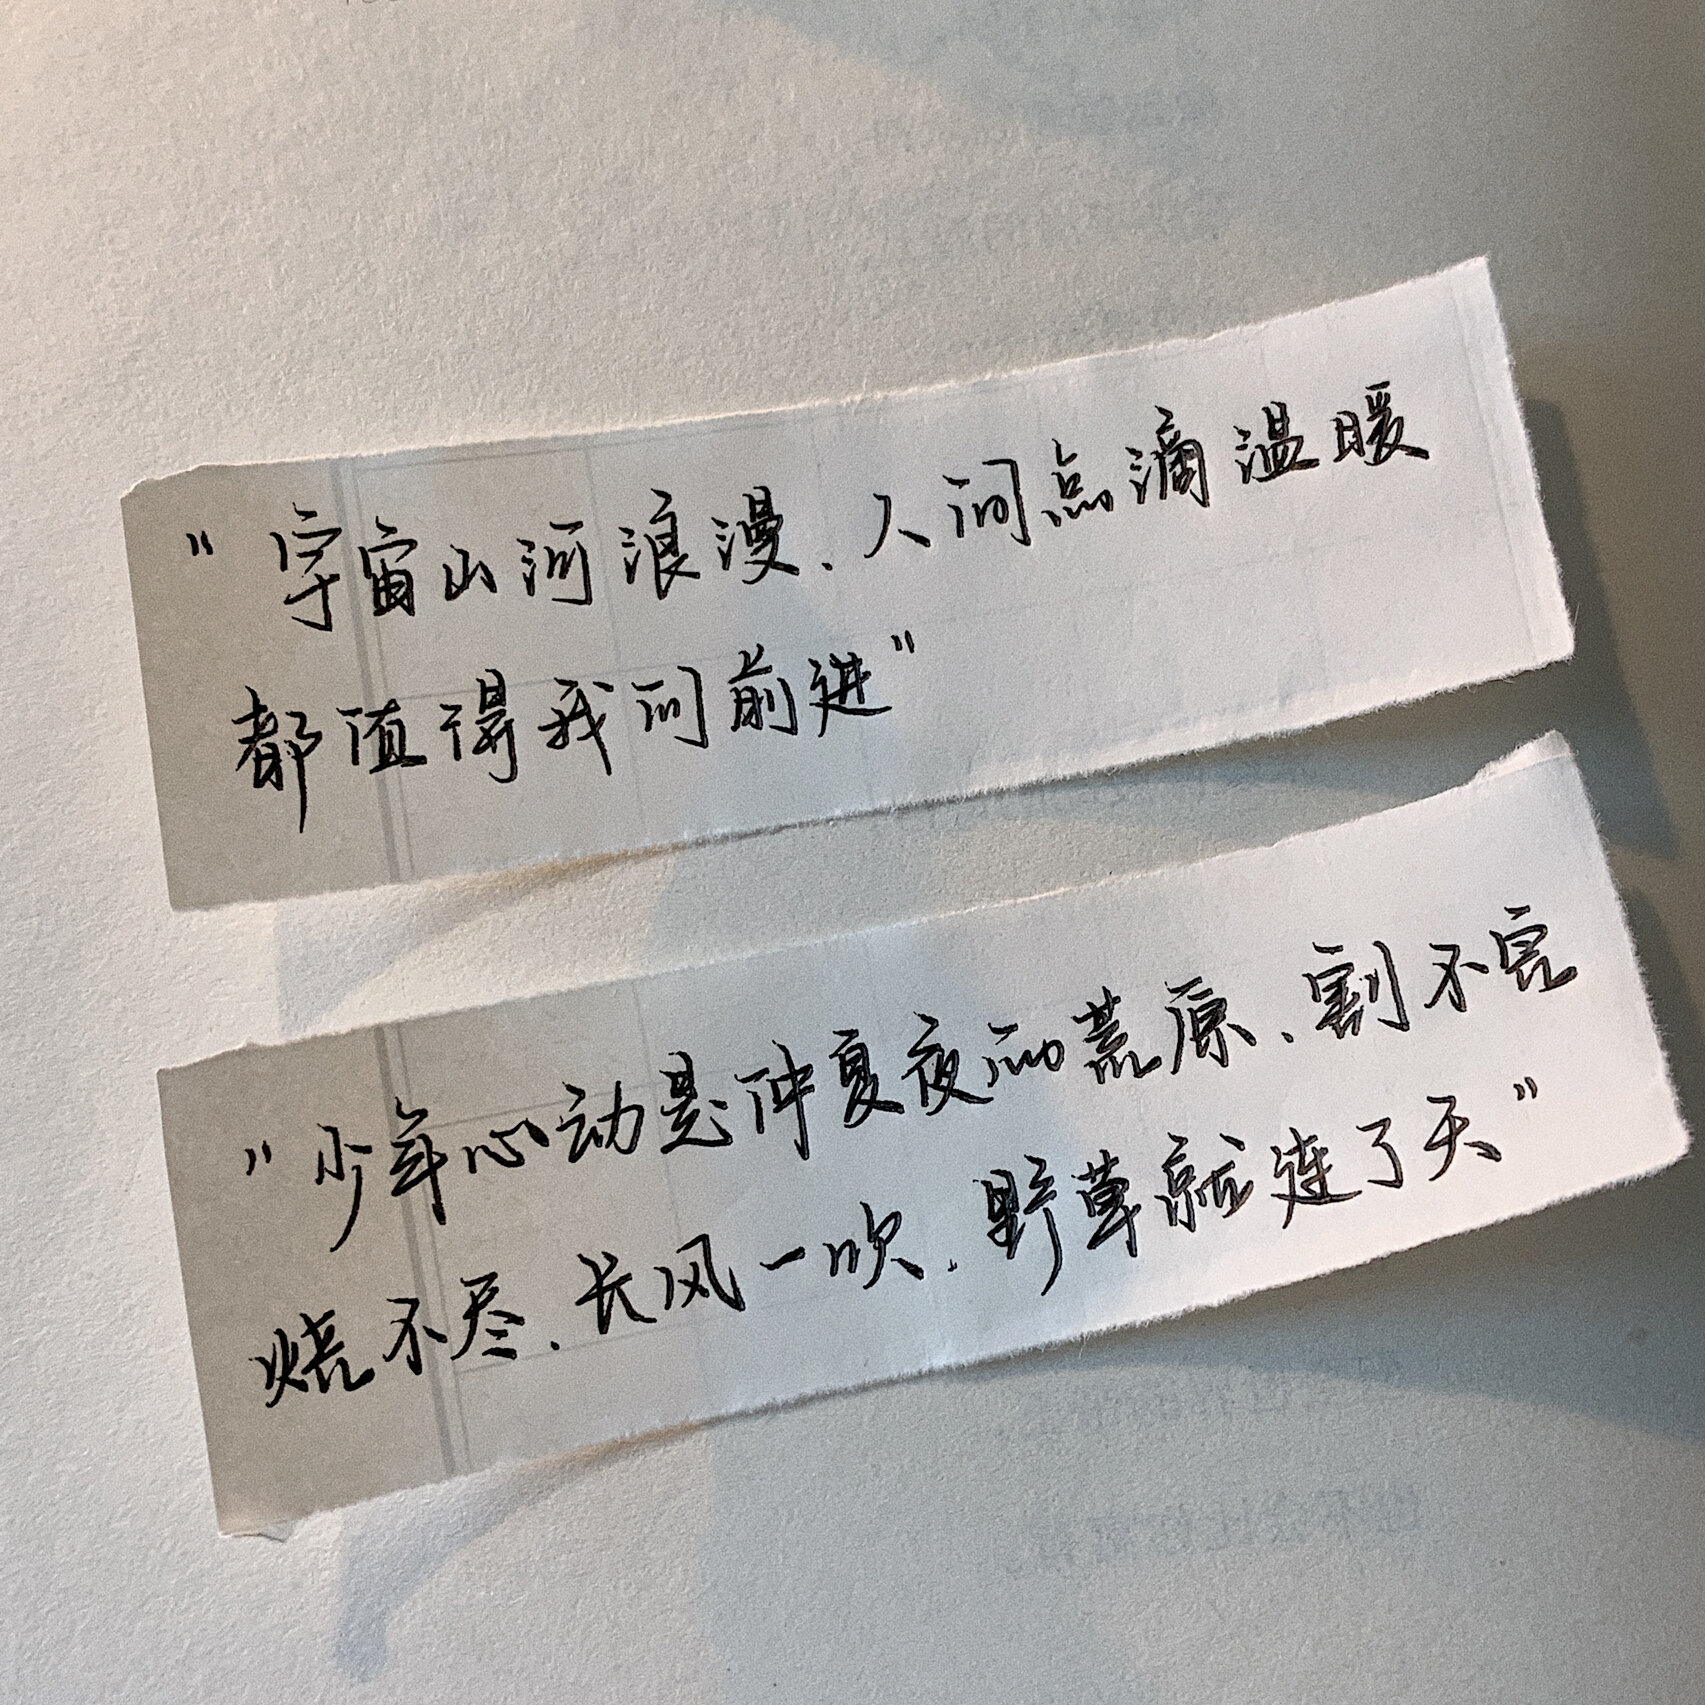 "宇宙山河浪漫、人间点滴温暖
都值得我们前进"
"少年心动是仲夏夜的荒原、割不完
烧不尽、长风一吹、野草就连了天"